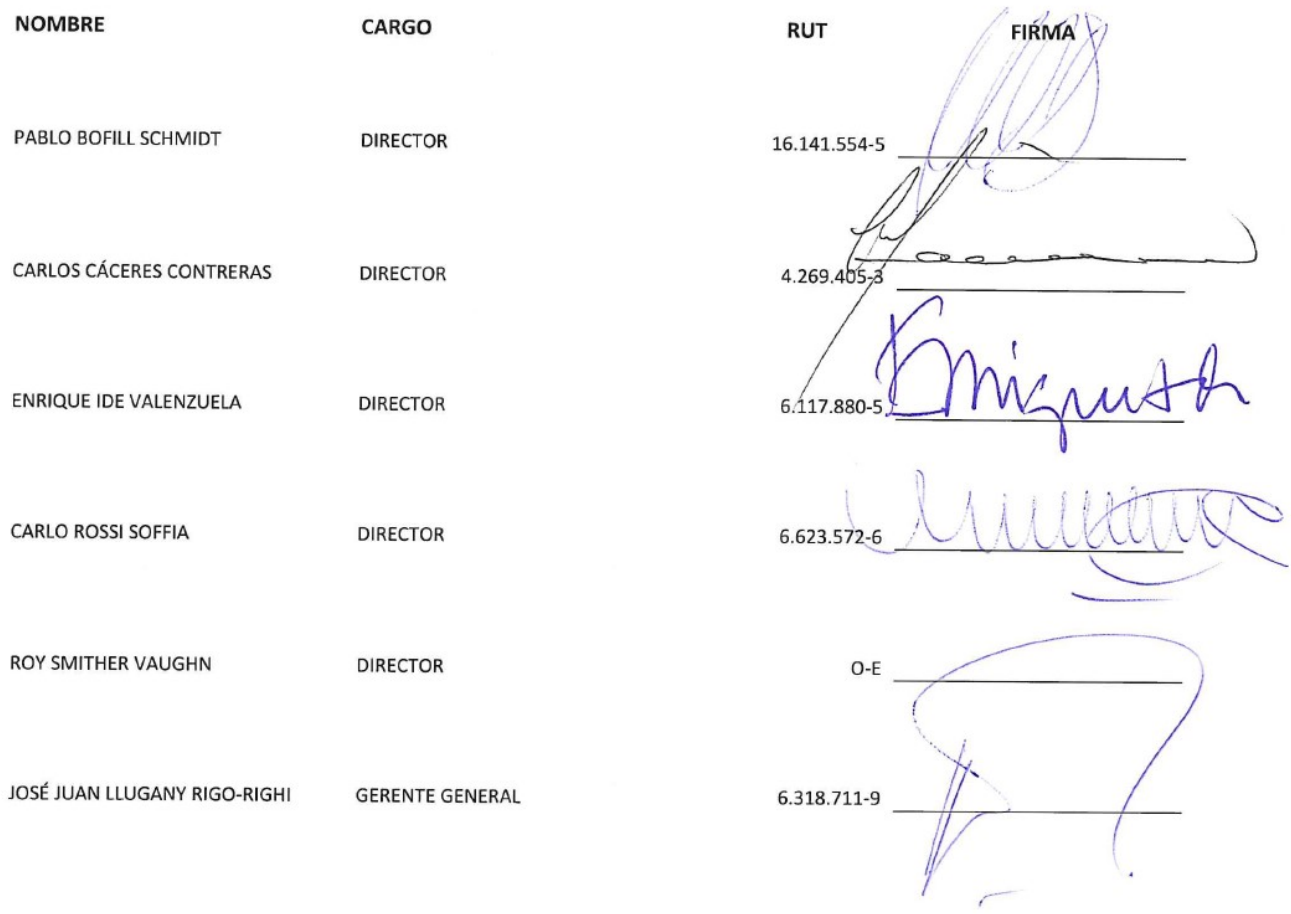 NOMBRE CARGO RUT FIRMA
PABLO BOFILL SCHMIDT DIRECTOR 16.141.554-5
CARLOS CÁCERES CONTRERAS DIRECTOR 4.269.405-3
ENRIQUE IDE VALENZUELA DIRECTOR 6.117.880-5
CARLO ROSSI SOFFIA DIRECTOR 6.623.572-6
ROY SMITHER VAUGHN DIRECTOR O-E
JOSÉ JUAN LLUGANY RIGO-RIGHI GERENTE GENERAL 6.318.711-9